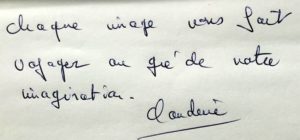 chaque image vous fait
voyager au gré de votre
imagination.
Claudine